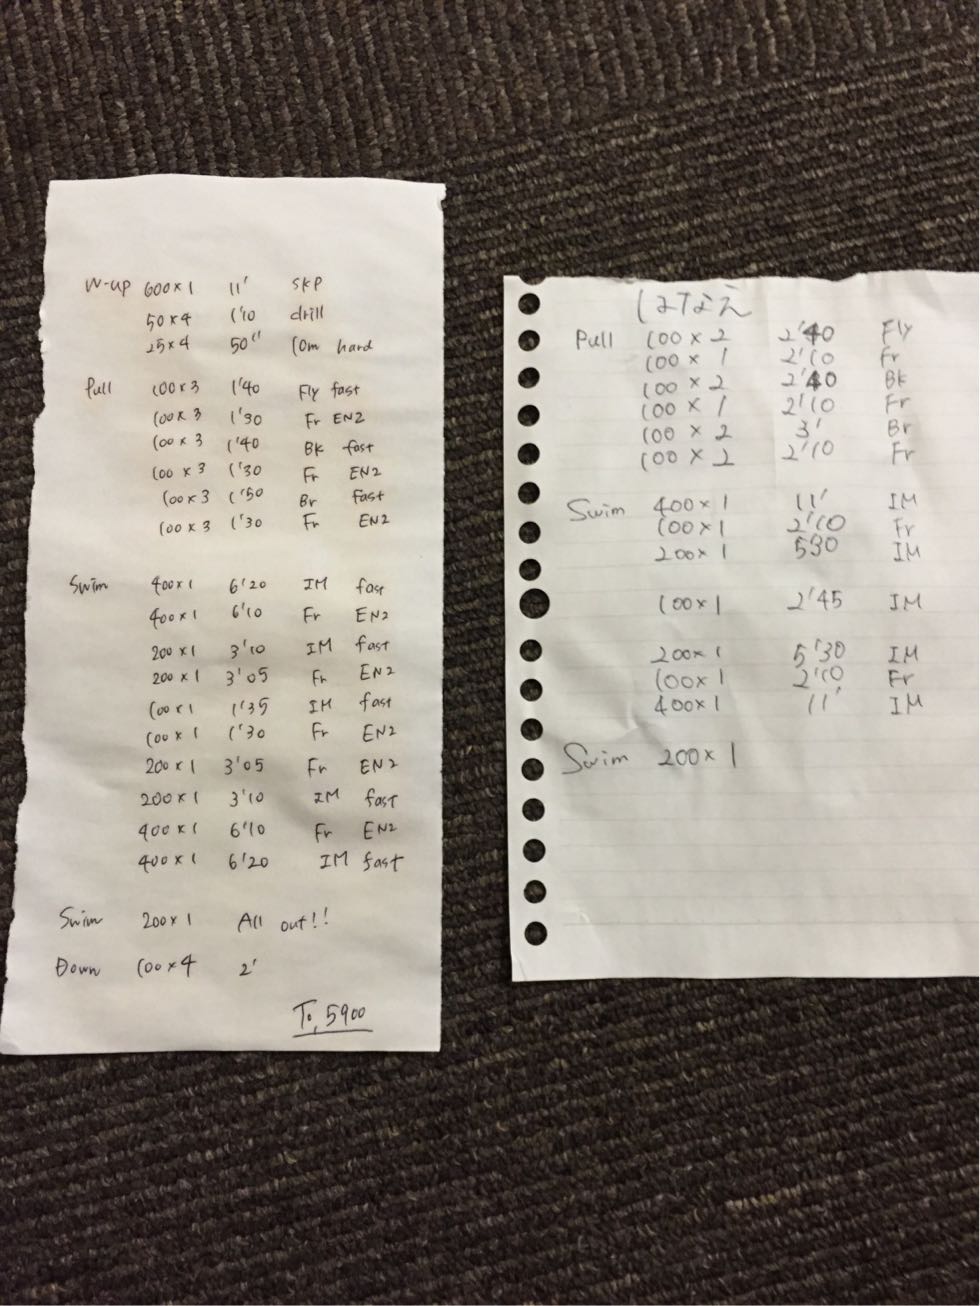 W-up 600×1 11' SKP
50×4 1'10 drill
25×4 50" 10m hard
Pull 100×3 1'40 Fly fast
100×3 1'30 Fr EN2
100×3 1'40 Bk fast
100×3 1'30 Fr EN2
100×3 1'50 Br fast
100×3 1'30 Fr EN2
Swim 400×1 6'20 IM fast
400×1 6'10 Fr EN2
200×1 3'10 IM fast
200×1 3'05 Fr EN2
100×1 1'35 IM fast
100×1 1'30 Fr EN2
200×1 3'05 Fr EN2
200×1 3'10 IM fast
400×1 6'10 Fr EN2
400×1 6'20 IM fast
Swim 200×1 All out!!
Down 100×4 2'
To, 5900
はなえ
Pull 100×2 2'40 Fly
100×1 2'10 Fr
100×2 2'40 Bk
100×1 2'10 Fr
100×2 3' Br
100×2 2'10 Fr
Swim 400×1 11' IM
100×1 2'10 Fr
200×1 530 IM
100×1 2'45 IM
200×1 5'30 IM
100×1 2'10 Fr
400×1 11' IM
Swim 200×1